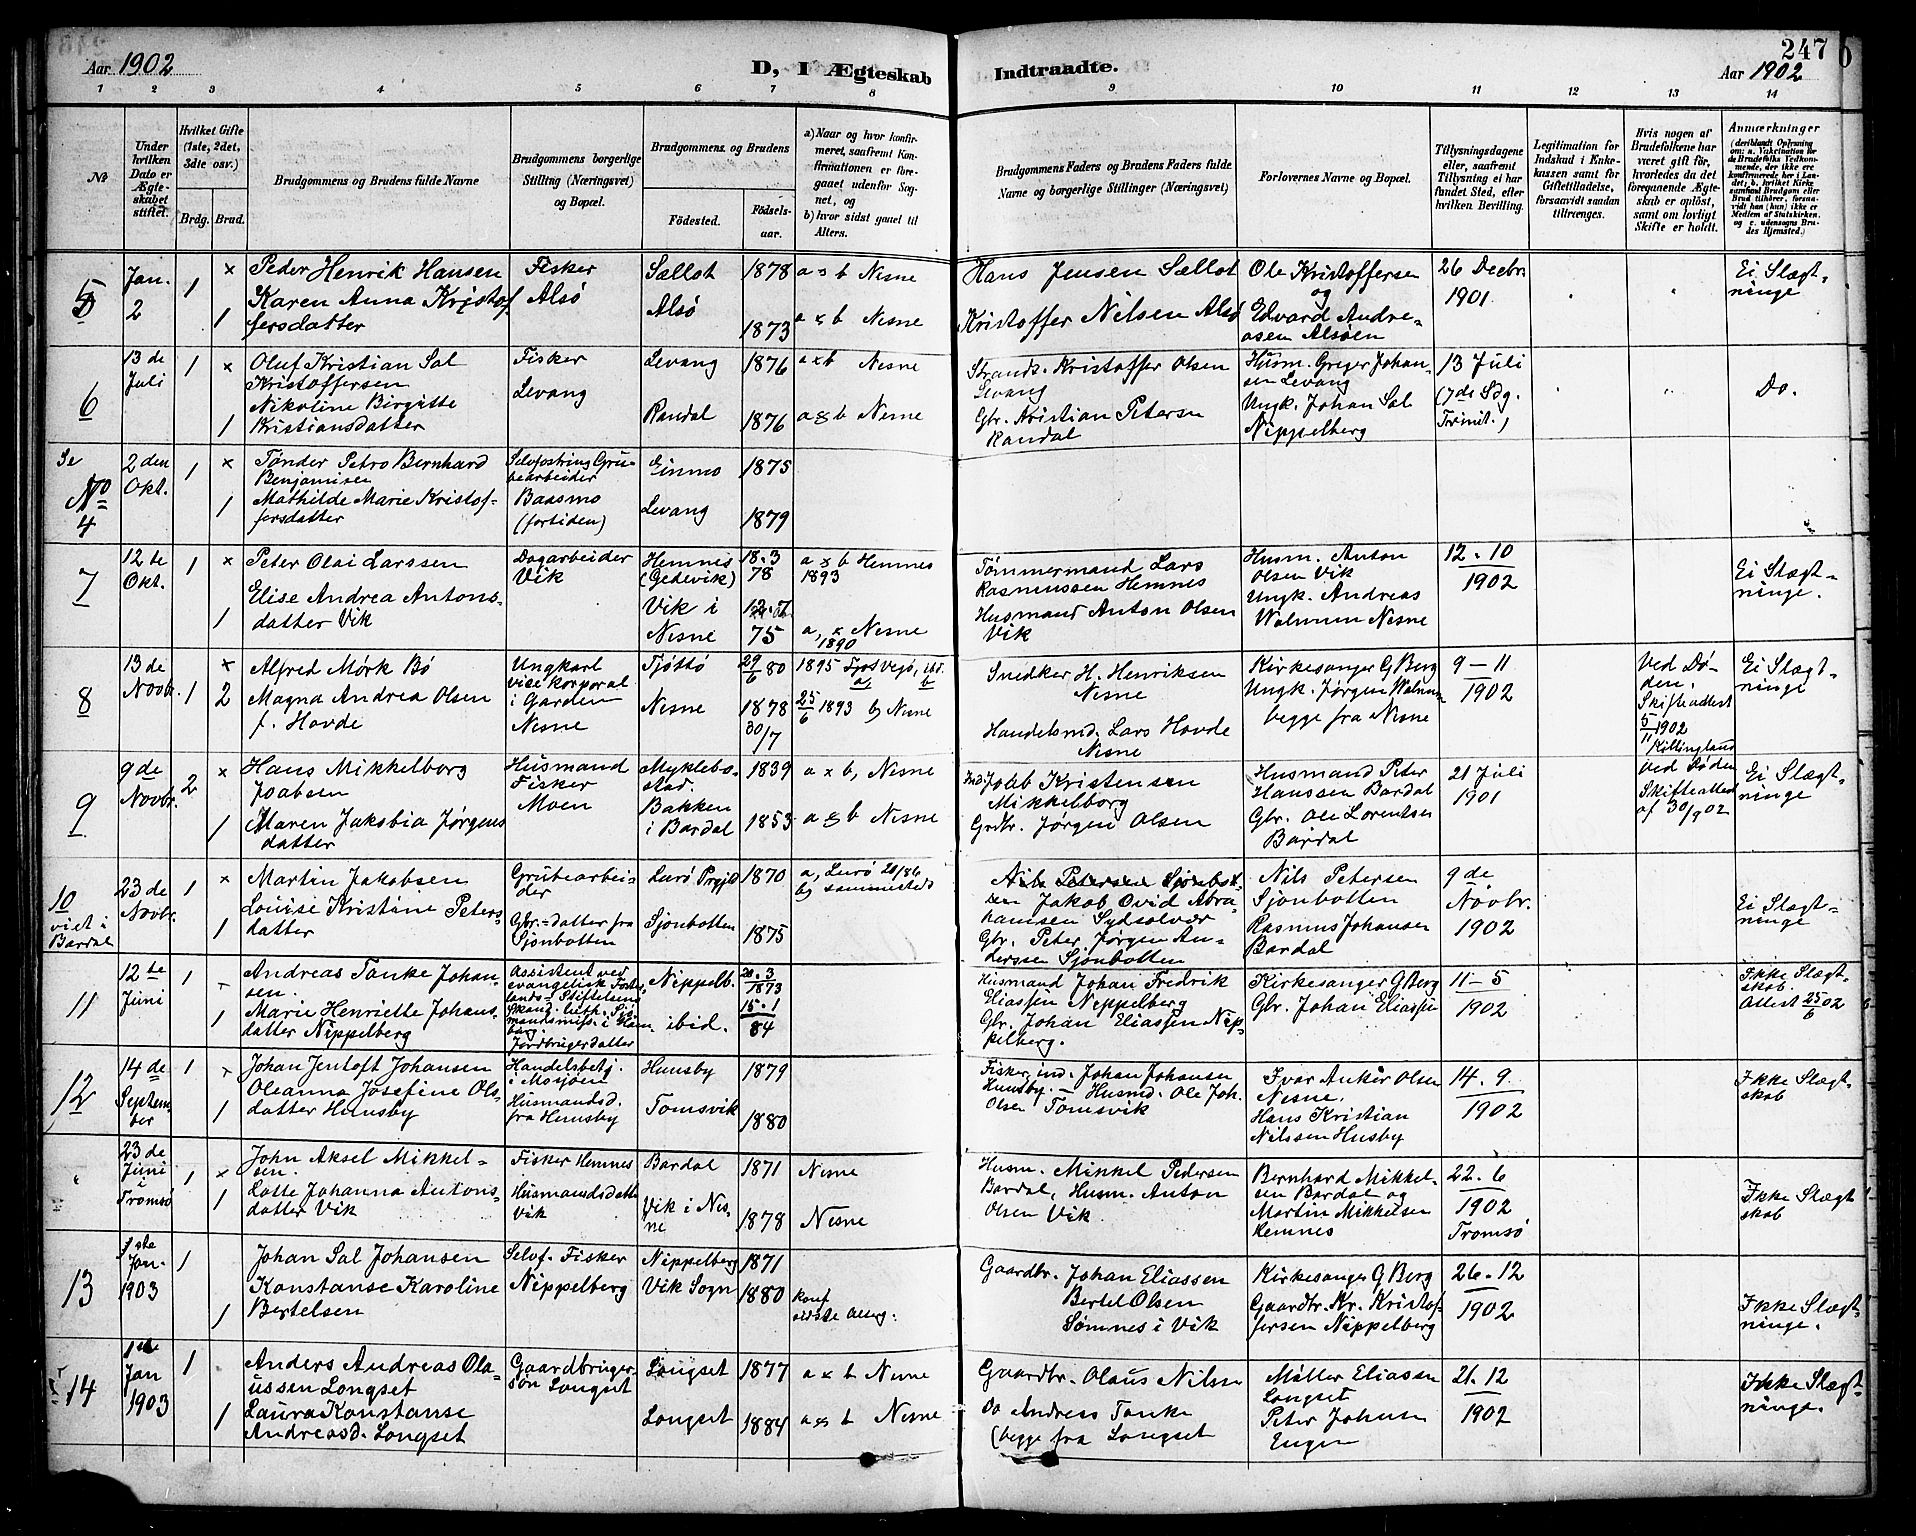 247
Aar 1902
D, I Ægteskab Indtraadte.
Aar 1902
1 2 3 4 5 6 7 8 9 10 11 12 13 14
No
Under hvilken Dato er Ægteskabet stiftet.
Hvilket Gifte (1ste, 2det, 3die osv.)
Brdg. Brud.
Brudgommens og Brudens fulde Navne
Brudgommens borgerlige Stilling (Næringsvei) og Bopæl.
Brudgommens og Brudens
Fødested.
Fødsels-aar.
a) Naar og hvor konfirmeret, saafremt Konfirmationen er foregaaet udenfor Sognet, og
b) hvor sidst gaaet til Alters.
Brudgommens Faders og Brudens Faders fulde Navne og borgerlige Stillinger (Næringsvei)
Forlovernes Navne og Bopæl.
Tillysningsdagene eller, saafremt Tillysning ei har fundet Sted, efter hvilken Bevilling.
Legitimation for Indskud i Enkekassen samt for Giftetilladelse, forsaavidt saadan tiltrænges.
Hvis nogen af Brudefolkene har været gift før, hvorledes da det foregaaende Ægteskab er opløst, samt om lovligt Skifte er holdt.
Anmærkninger
5
Jan. 2
1 ×
Peder Henrik Hansen
1
Karen Anna Kristof-
fersdatter
Fisker
Alsø
Sællot
Alsø
1878
1873
a & b Nesne
a & b Nesne
Hans Jensen Sællot
Kristoffer Nilsen Alsø
Ole Kristoffersen
og
Edvard Andre-
asen Alsøen
26 Decbr.
1901
Ei Slægt-
ninge
6
13 de
Juli
1 ×
Oluf Kristian Sal
Kristoffersen
Nikoline Birgitte
1
Kristiansdatter
Fisker
Levang
Levang
Randal
1876
1876
a & b Nesne
a & b Nesne
Strands. Kristoffer Olsen
Levang
Gbr. Kristian Petersen
Randal
Husm. Greger Johan-
sen Levang
Ungk. Johan Sal
Nippelberg
13 Juli
(7de Sdg.
Trinit.)
Do.
Se
No
4
2 den
Okt.
1 ×
Tønder Petro Bernhard
Benjaminsen
1
Mathilde Marie Kristof-
fersdatter
Selvfostring Gru-
bearbeider
Baasmo
(fortiden)
Einmo
Levang
1875
1879
7
12 te
Okt.
1 ×
Peter Olai Larssen
Elise Andrea Antons-
1
datter Vik
Dagarbeider
Vik
Hemnes
(Gedevik)
Vik i
Nesne
18.3
78
12.7
75
a & b Hemnes
1893
a, × Nesne
1890
Tømmermand Lars
Rasmussen Hemnes
Husmand Anton Olsen
Vik
Husm. Anton
Olsen Vik
Ungk. Andreas
Walnum Nesne
12.10
1902
Ei Slægt-
ninge.
8
13 de
Novbr.
1 ×
2
Alfred Mørk Bø
Magna Andrea Olsen
f. Hovde
Ungkarl
vice korporal
i Garden
Nesne
Tjøttø
Nesne
29/6 80
1878
30/7
25/6 1893 b) Nesne
Snedker H. Henriksen
Nesne
Handelsmd. Lars Hovde
Nesne
Kirkesanger G Berg
Ungk. Jørgen Walnum
begge fra Nesne
9 – 11
1902
Ved Dø-
den.
Skifteattest
5/11 1902
Ei Slægt-
ninge
9
9 de
Novbr.
2 ×
Hans Mikkelborg
Joabsen
1
Maren Jakobia Jørgens
datter
Husmand
Fisker
Moen
Myklebo-
stad.
Bakken
i Bardal
1839
1853
a × b, Nesne
a & b Nesne
Joab Kristensen
Mikkelborg
Grdbr. Jørgen Olsen
Husmand Peter
Hanssen Bardal
Gbr. Ole Lorentsen
Bardal
21 Juli
1901
Ved Døden
Skifteattest
af 30/9 02
Ei Slægt-
ninge
10
viet i
Bardal
23 de
Novbr.
1 ×
Martin Jakobsen
Louise Kristine Peters-
1
datter
Grubearbei-
der
Gbr.-datter fra
Sjonbotten
Lurø Prgjld
Sjonbotten
1870
1875
a, Lurø 20/86
b) sammesteds
Nils Petersen Sjonbot-
ten Jakob Ovid Abra-
hamsen Sydsolvær
Gbr. Peter Jørgen An-
derssen Sjonbotten
Nils Petersen
Sjonbotten
Rasmus Johansen
Bardal
9 de
Novbr.
1902
Ei Slægt-
ninge
11
12 te
Juni
1
Andreas Tanke Johan-
sen.
1
Marie Henriette Johans-
datter Nippelberg
Assistent ved
evangelisk
Jordbrugerdatter
Nippelb.
ibid.
20.3
1873
15.1
84
Husmand Johan Fredrik
Eliassen Nippelberg
Gbr. Johan Eliassen Nip-
pelberg.
Kirkesanger G Berg
Gbr. Johan Eliassen
11 – 5
1902
Ikke Slægt-
skab.
Attest 25/6 02
12
14 de
Septem-
ber
1 ×
Johan Jentoft Johansen
Oleanna Josefine Ols-
1
datter Husby
Handelsbetj.
i Mosjøen
Husmandsd.
fra Husby
Husby
Tomsvik
1879
1880
Fisker, ind. Johan Johansen
Husby. – Husmd. Ole Joh.
Olsen Tomsvik
Ivar Anker Olsen
Nesne.
Hans Kristian
Nilssen Husby
14.9.
1902
Ikke Slægt-
skab
23 de
Juni
i
Tromsø
1 ×
John Aksel Mikkel-
sen.
1
Lotte Johanna Antons-
datter Vik
Fisker Hemnes
Husmandsdatter
Vik
Bardal
Vik i Nes-
ne
1871
1878
Nesne
Nesne
Husm. Mikkel Pedersen
Bardal, Husm. Anton
Olsen Vik.
Bernhard Mikkel-
sen Bardal og
Martin Mikkelsen
Hemnes
22.6
1902
Tromsø
Ikke Slægt
skab
13
1ste
Jan.
1903
1
Johan Sal Johansen
Konstanse Karoline
1
Bertelsen
Selvf. Fisker
Nippelberg
Nippelberg
Vik Sogn
1871
1880
konf
sidste Alterg.
Gaardbr. Johan Eliassen
Bertel Olsen
Sømnes i Vik
Kirkesanger G Berg
Gaardbr. Kr. Kristof-
fersen Nippelberg
26.12
1902
Ikke Slægt-
ninge.
14
1ste
Jan
1903
1
Anders Andreas Ola-
ussen Longset
Laura Konstanse
1
Andreasd. Longset
Gaardbruger-
søn Longset
Longset
Longset
1877
1884
a × b Nesne
a & b Nesne
Gaardbr. Olaus Nilsen
Do Andreas Tanke
(begge fra Longset
Møller Eliassen
Longset
Peter Johnsen
Engen
21.12
1902
Ikke Slægt-
ninge.